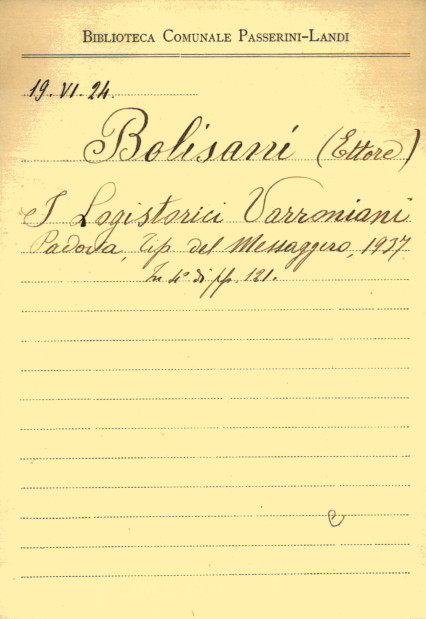 BIBLIOTECA COMUNALE PASSERINI-LANDI
19. VI. 24.
Bolisani (Ettore)
I Logistorici Varroniani
Padova, Tip. del Messaggero, 1937
In 4° di pp. 121.
e